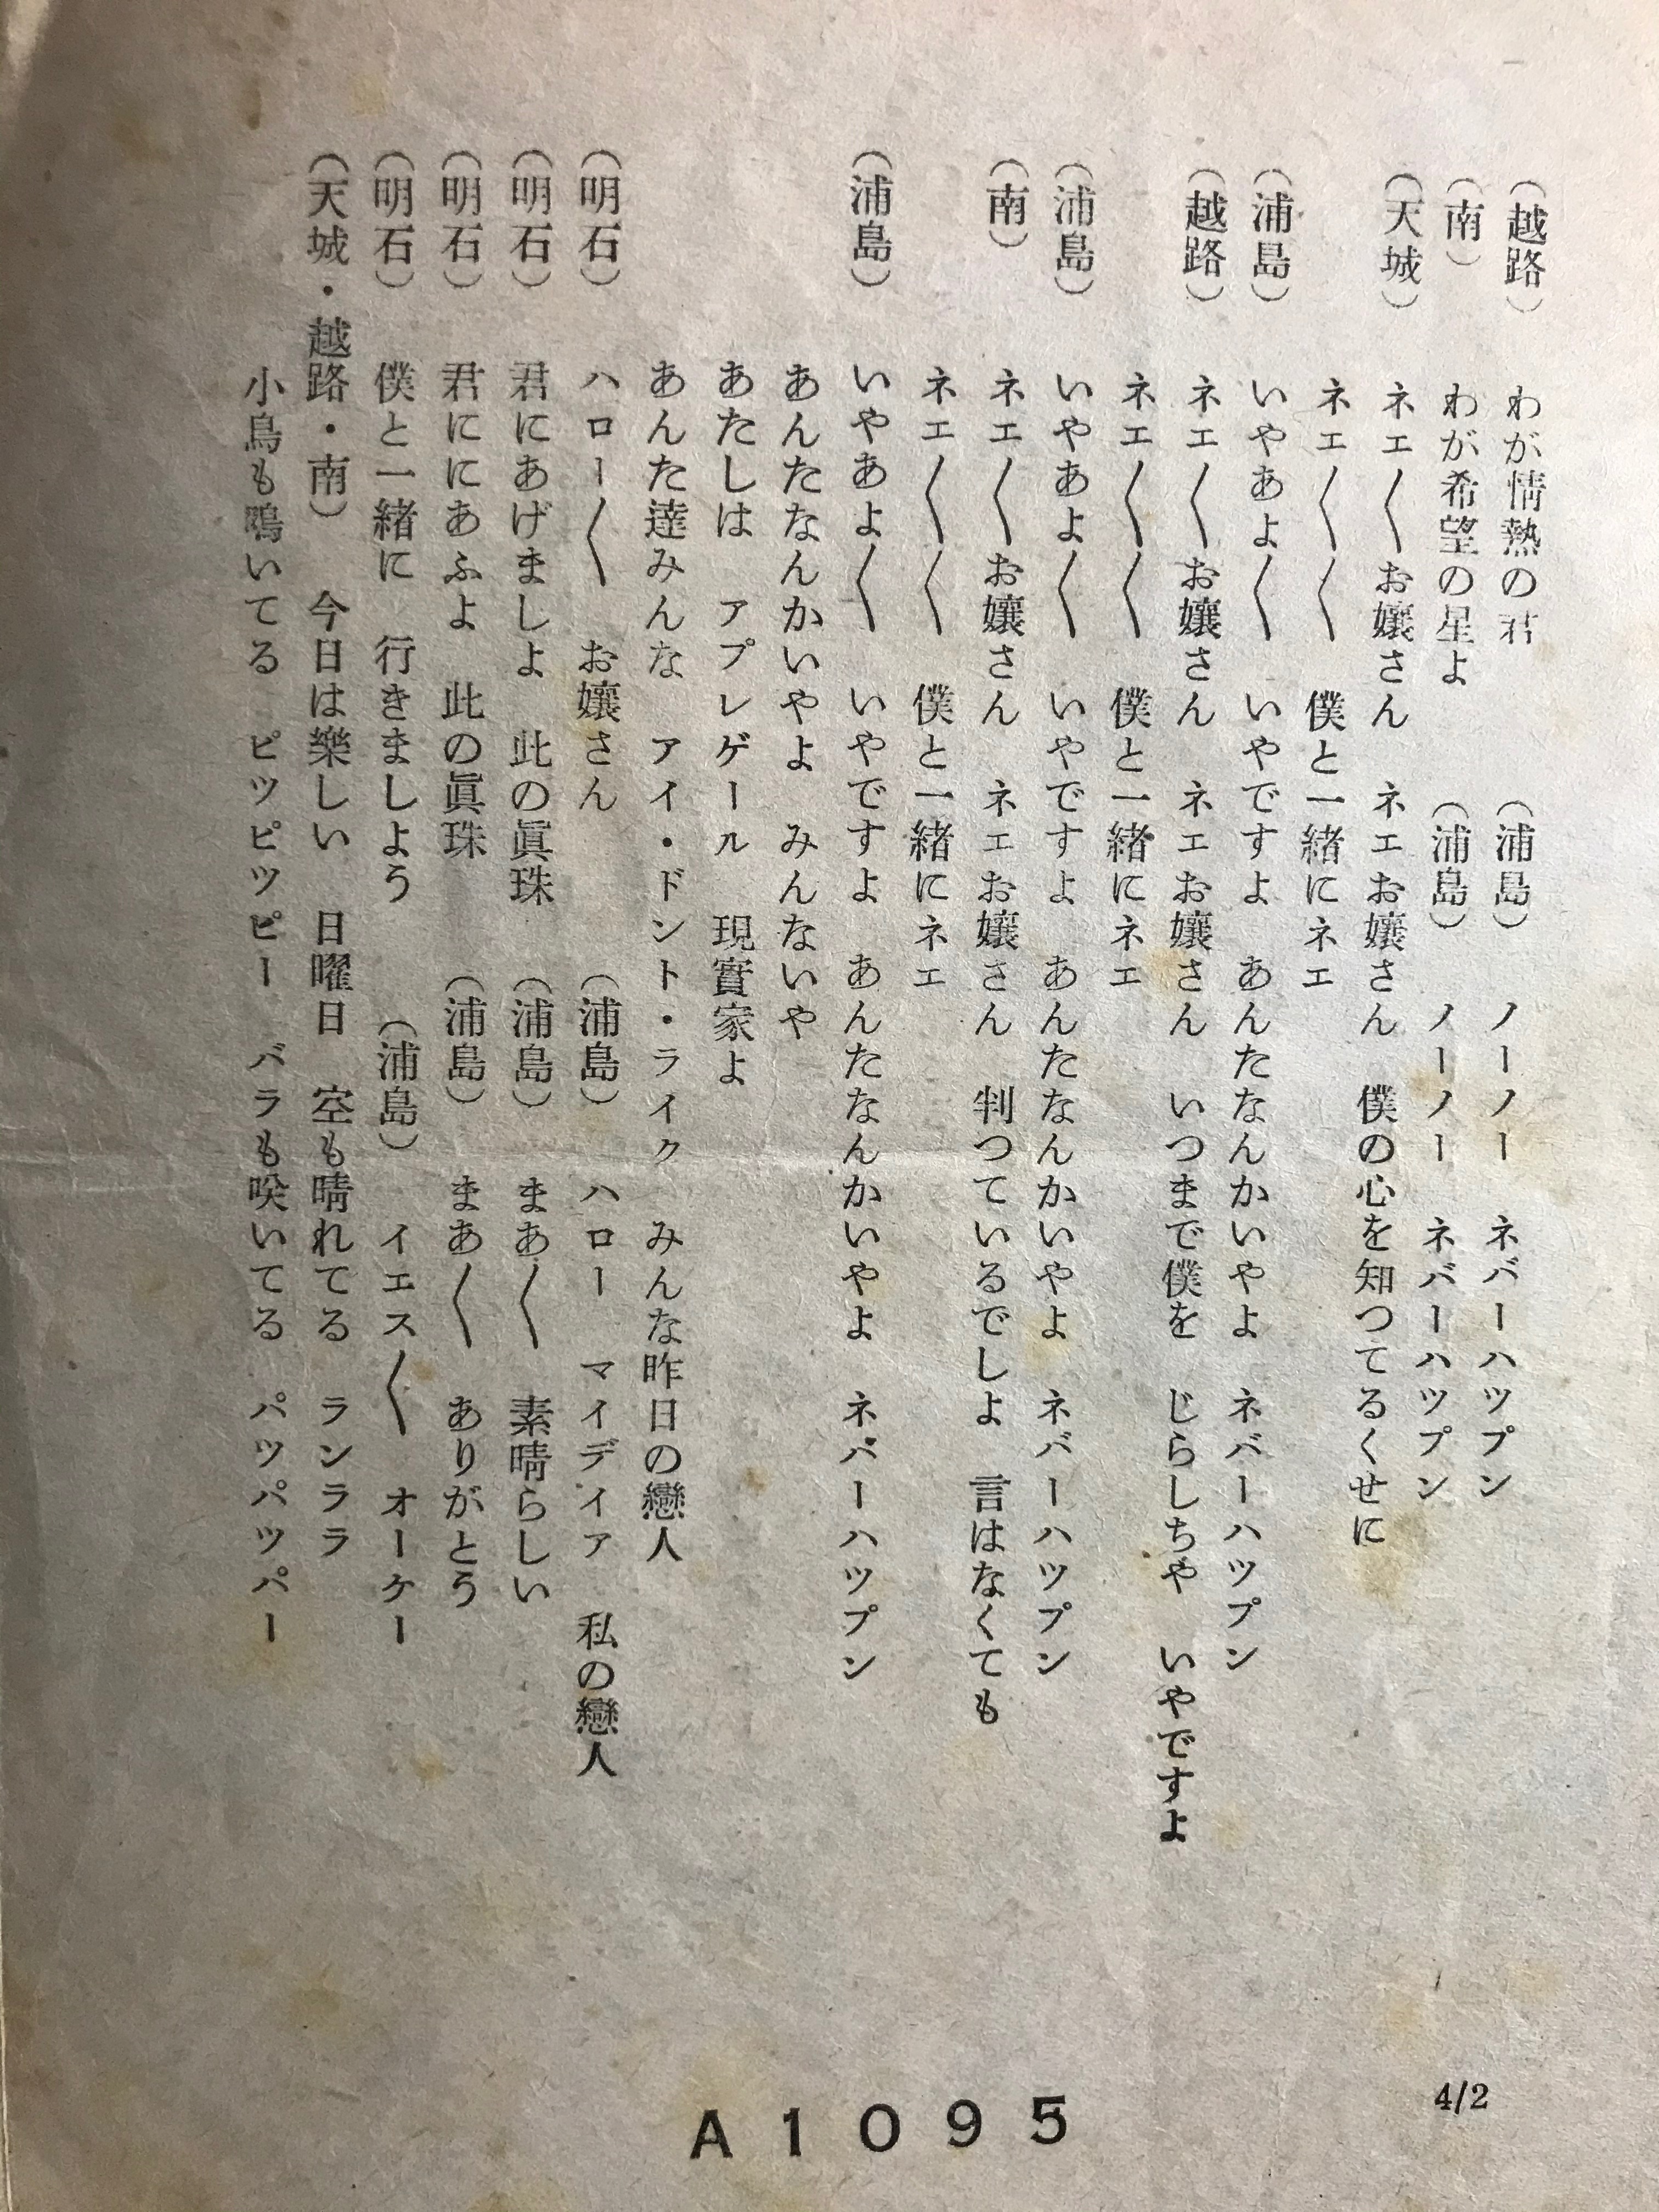 （越路）　わが情熱の君　（浦島）　ノーノー　ネバーハツプン
（南）　わが希望の星よ　（浦島）　ノーノー　ネバーハツプン
（天城）　ネエ〳〵お嬢さん　ネエお嬢さん　僕の心を知つてるくせに
ネエ〳〵〳〵　僕と一緒にネエ
（浦島）　いやあよ〳〵　いやですよ　あんたなんかいやよ　ネバーハツプン
（越路）　ネエ〳〵お嬢さん　ネエお嬢さん　いつまで僕を　じらしちや　いやですよ
ネエ〳〵〳〵　僕と一緒にネエ
（浦島）　いやあよ〳〵　いやですよ　あんたなんかいやよ　ネバーハツプン
（南）　ネエ〳〵お嬢さん　ネエお嬢さん　判つているでしよ　言はなくても
ネエ〳〵〳〵　僕と一緒にネエ
（浦島）　いやあよ〳〵　いやですよ　あんたなんかいやよ　ネバーハツプン
あんたなんかいやよ　みんないや
あたしは　アプレゲール　現實家よ
あんた達みんな　アイ・ドント・ライク　みんな昨日の戀人
（明石）　ハロー〳〵　お嬢さん　（浦島）　ハロー　マイデイア　私の戀人
（明石）　君にあげましよ　此の眞珠　（浦島）　まあ〳〵　素晴らしい
（明石）　君ににあふよ　此の眞珠　（浦島）　まあ〳〵　ありがとう
（明石）　僕と一緒に　行きましよう　（浦島）　イエス〳〵　オーケー
（天城・越路・南）　今日は樂しい　日曜日　空も晴れてる　ランララ
小鳥も鳴いてる　ピツピツピー　バラも咲いてる　パツパツパー
4/2
A1095